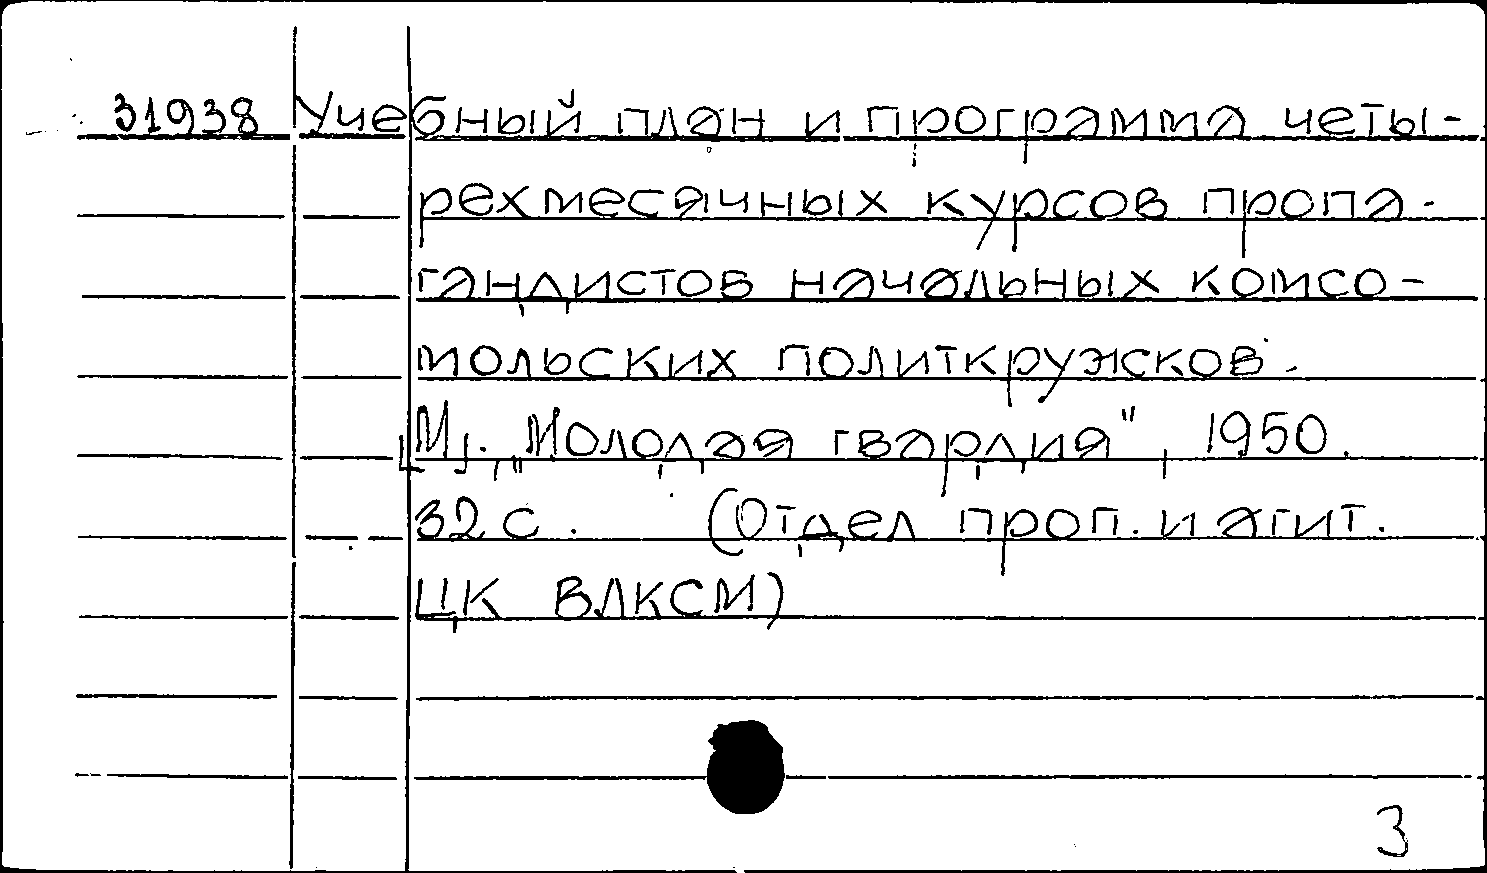 31938 Учебный план и программа четы-
рехмесячных курсов пропа-
гандистов начальных комсо-
мольских политкружков.
[М], „Молодая гвардия", 1950.
32 с. (Отдел проп. и агит.
ЦК ВЛКСМ)
3